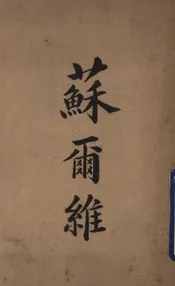 蘇爾維